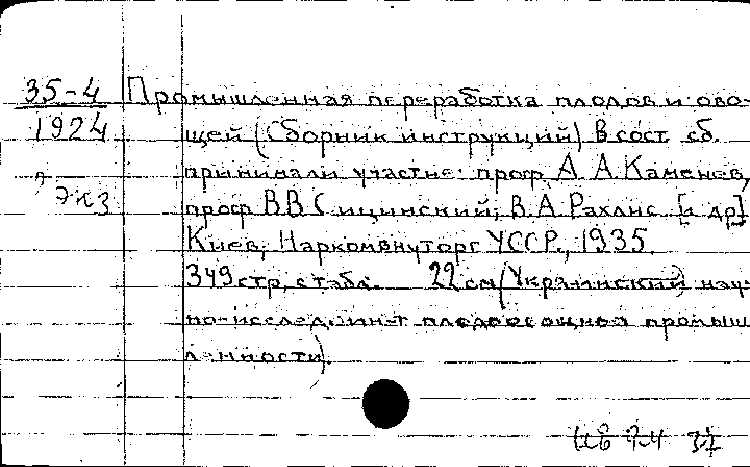 35-4 Промышленная переработка плодов и ово-
1924 щей (Сборник инструкций) В сост. сб.
принимали участие: проф. А. А. Каменев,
? экз проф. В.В. ицинский; В.А. Рахлис [и др]
Киев, Наркомвнуторг УССР., 1935.
349 стр., с табл. 22 см (Украинский науч-
но-исслед. ин-т плодоовощной промыш
ленности).